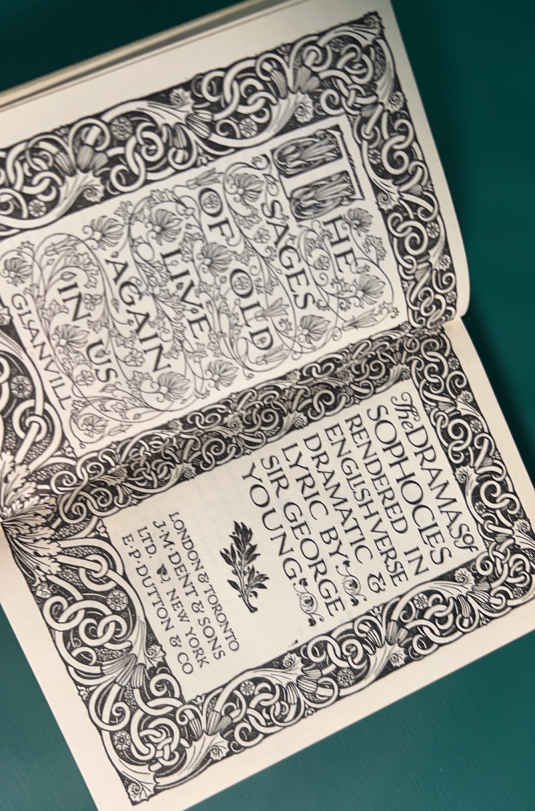 THE
SAGES
OF OLD
LIVE
AGAIN
IN US
GLANVILL
The DRAMAS of
SOPHOCLES
RENDERED IN
ENGLISH VERSE
DRAMATIC &
LYRIC BY
SIR GEORGE
YOUNG
LONDON & TORONTO
J·M·DENT & SONS
LTD. NEW YORK
E·P·DUTTON & CO